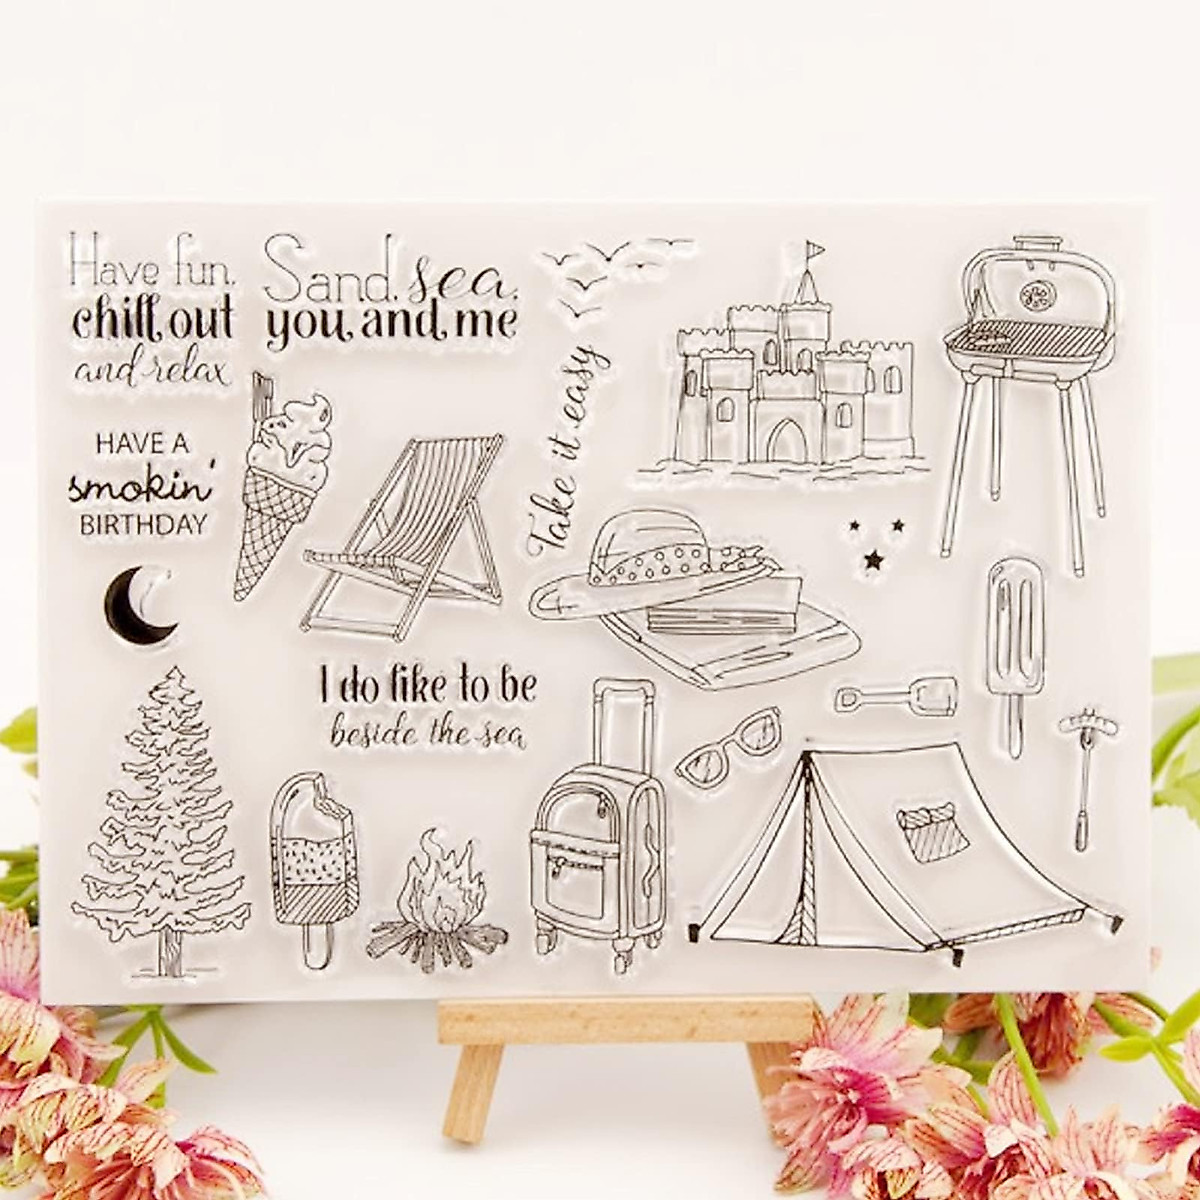 Have fun,
chill out
and relax
Sand, sea,
you and me
Take it easy
HAVE A
smokin'
BIRTHDAY
I do like to be
beside the sea